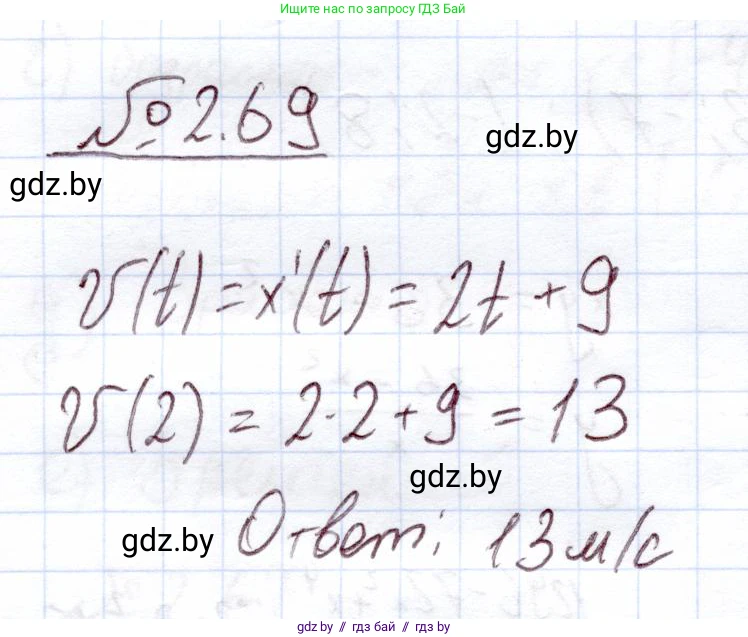 Ищите нас по запросу ГДЗ Бай
№ 2.69
gdz.by
gdz.by
v(t) = x'(t) = 2t + 9
v(2) = 2·2 + 9 = 13
gdz.by
gdz.by
Ответ: 13 м/с
gdz.by // гдз бай // гдз by